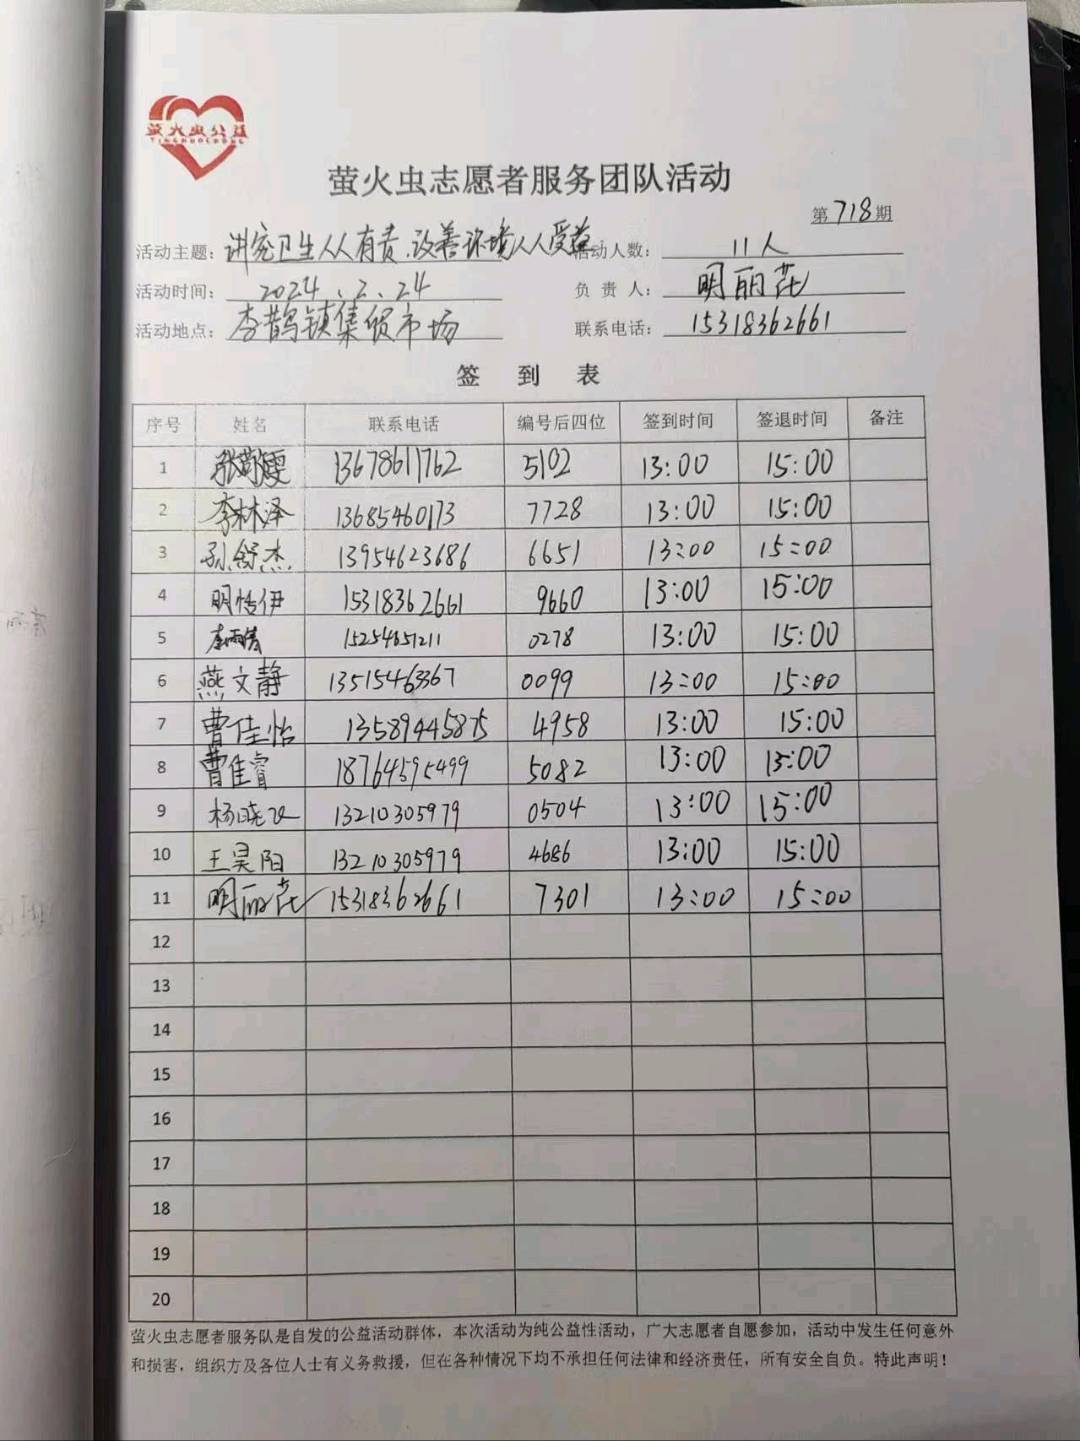 萤火虫公益
YINGHUOCHONG
萤火虫志愿者服务团队活动
第718期
活动主题：讲究卫生人人有责.改善环境人人受益 活动人数： 11人
活动时间： 2024、2、24 负 责 人： 明丽芘
活动地点： 李鹊镇集贸市场 联系电话： 15318362661
签 到 表
序号 姓名 联系电话 编号后四位 签到时间 签退时间 备注
1 13678611762 5102 13:00 15:00
2 李林泽 13685460173 7728 13:00 15:00
3 孙舒杰 13954623686 6651 13:00 15:00
4 明恬伊 15318362661 9660 13:00 15:00
5 李雨倩 15254651211 0278 13:00 15:00
6 燕文静 13515463367 0099 13:00 15:00
7 曹佳怡 13589445875 4958 13:00 15:00
8 曹佳睿 18764595499 5082 13:00 15:00
9 杨晓 13210305979 0504 13:00 15:00
10 王昊阳 13210305979 4686 13:00 15:00
11 明丽芘 15318362661 7301 13:00 15:00
12
13
14
15
16
17
18
19
20
萤火虫志愿者服务队是自发的公益活动群体，本次活动为纯公益性活动，广大志愿者自愿参加，活动中发生任何意外
和损害，组织方及各位人士有义务救援，但在各种情况下均不承担任何法律和经济责任，所有安全自负。特此声明！